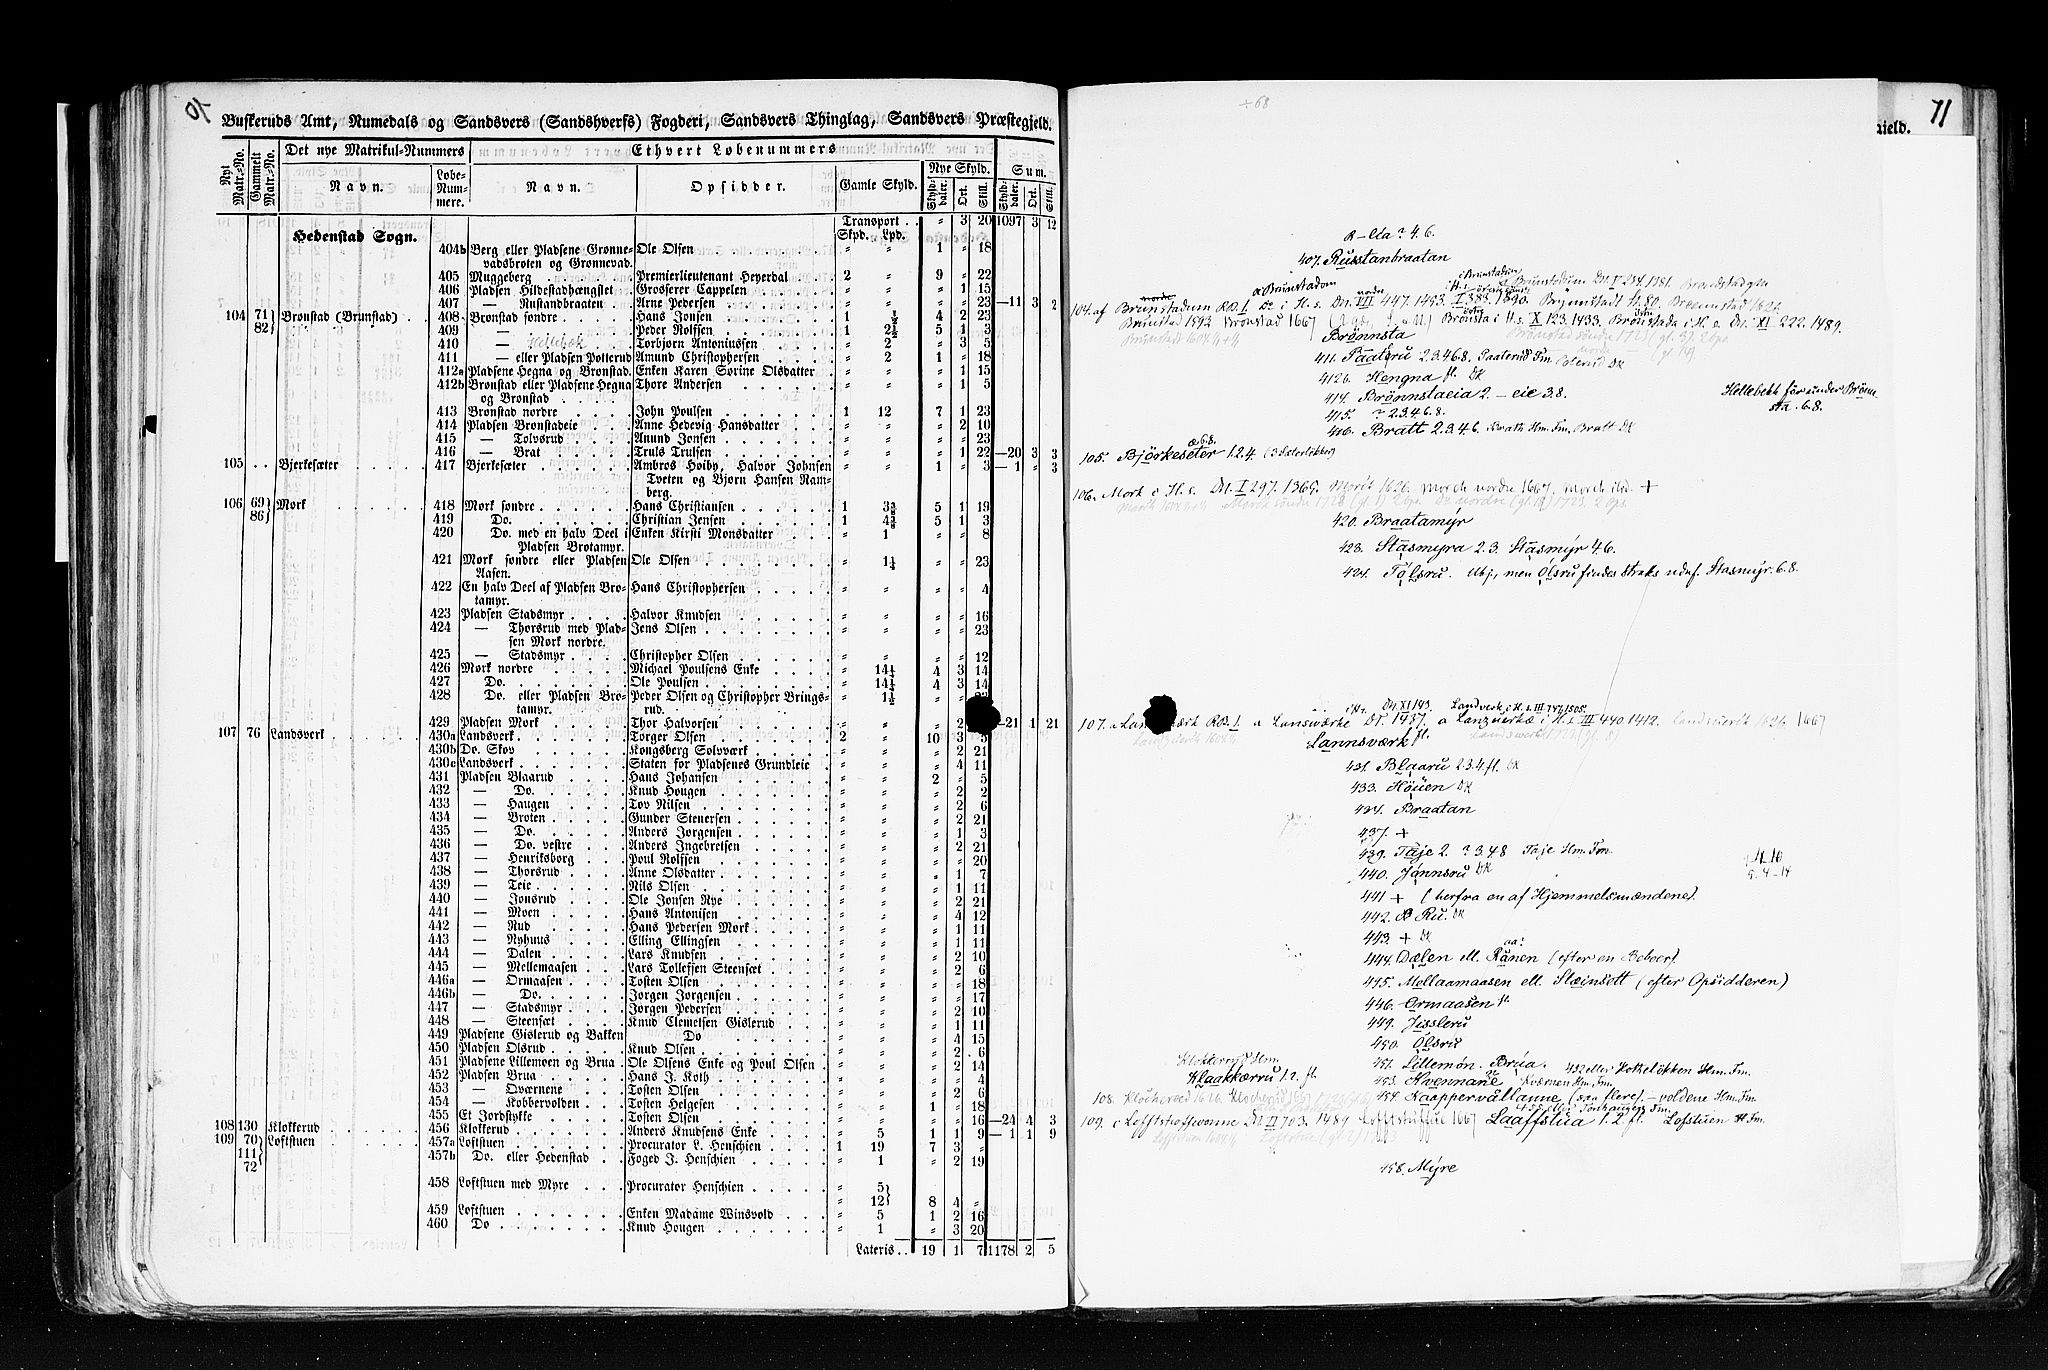 70
Buskeruds Amt, Numedals og Sandsvers (Sandshverfs) Fogderi, Sandsvers Thinglag, Sandsvers Præstegjeld.
Nyt Matr.-No. Gammelt Matr.-No. Det nye Matrikul-Nummers Ethvert Løbenummers
Navn. Løbe-Num-mere. Navn. Opsidder. Gamle Skyld. Nye Skyld. Sum.
Skyld-daler. Ort. Skill. Skyld-daler. Ort. Skill.
Transport . . „ 3 20 1097 3 12
Hedenstad Sogn. Skpd. Lpd.
404b Berg eller Pladsene Grønne- Ole Olsen „ „ 1 „ 18
vadsbroten og Grønnevad.
405 Muggeberg Premierlieutenant Heyerdal 2 „ 9 „ 22
406 Pladsen Hildestadhængslet Grosserer Cappelen „ „ „ 1 15
407 — Rustandbraaten Arne Pedersen „ „ „ „ 23 —11 3 2
104 71 Brønstad (Brunstad) 408 Brønstad søndre Hans Jonsen 1 ½ 4 2 23
82 409 — Peder Rolfsen 1 2½ 5 1 3
410 — Hellebæk Torbjørn Antoniussen „ 2 „ 3 5
411 — eller Pladsen Potterud Amund Christophersen „ 2 1 „ 18
412a Pladsen Hegna og Brønstad Enken Karen Sørine Olsdatter „ „ „ 1 15
412b Brønstad eller Pladsen Hegna Thore Andersen „ „ „ 1 5
og Brønstad
413 Brønstad nordre John Poulsen 1 12 7 1 23
414 Pladsen Brønstadeie Anne Hedevig Hansdatter „ „ „ 2 10
415 — Tolvsrud Anund Jonsen „ „ „ „ 23
416 — Brat Truls Trulsen „ „ „ 1 22 —20 3 3
105 . . Bjerkesæter 417 Bjerkesæter Ambros Høiby, Halvor Johnsen „ „ 1 „ 3 — 1 „ 3
Tveten og Bjørn Hansen Ram-
berg.
106 69 Mørk 418 Mørk søndre Hans Christiansen 1 3⅜ 5 1 19
86 419 Do. Christian Jensen 1 4⅜ 5 1 3
420 Do. med en halv Deel i Enken Kirsti Monsdatter „ 1 „ „ 8
Pladsen Brotamyr.
421 Mørk søndre eller Pladsen Ole Olsen „ 1¼ „ „ 23
Aasen.
422 En halv Deel af Pladsen Bro- Hans Christophersen „ „ „ „ 4
tamyr.
423 Pladsen Stadsmyr Halvor Knudsen „ „ „ „ 16
424 — Thorsrud med Plad- Jens Olsen „ „ „ „ 23
sen Mørk nordre.
425 — Stadsmyr Christopher Olsen „ „ „ „ 12
426 Mørk nordre Michael Poulsens Enke „ 14¼ 4 3 14
427 Do. Ole Poulsen „ 14¼ 4 3 14
428 Do. eller Pladsen Bro- Peder Olsen og Christopher Brings- „ 1½ „ „
tamyr. rud.
429 Pladsen Mørk Thor Halvorsen „ „ „ 2 —21 1 21
107 76 Landsverk 430a Landsverk Torger Olsen 2 „ 10 3 5
430b Do. Skov Kongsberg Sølvværk „ „ „ 2 21
430c Landsverk Staten for Pladsenes Grundleie „ „ „ 4 11
431 Pladsen Blaarud Hans Johansen „ „ 2 „ 5
432 — Do. Knud Hougen „ „ „ 2 2
433 — Haugen Tov Nilsen „ „ „ 2 6
434 — Broten Gunder Stenersen „ „ „ 2 21
435 — Do. Anders Jørgensen „ „ „ 1 3
436 — Do. vestre Anders Ingebretsen „ „ „ 2 21
437 — Henriksborg Poul Rolfsen „ „ „ „ 20
438 — Thorsrud Anne Olsdatter „ „ „ 1 7
439 — Teie Nils Olsen „ „ „ 1 11
440 — Jonsrud Ole Jonsen Nye „ „ „ 2 21
441 — Moen Hans Antonisen „ „ „ 4 12
442 — Rud Hans Pedersen Mørk „ „ „ 1 11
443 — Nyhuus Elling Ellingsen „ „ „ 1 11
444 — Dalen Lars Knudsen „ „ „ 2 10
445 — Mellemaasen Lars Tollefsen Steensæt „ „ „ 2 6
446a — Ormaasen Tosten Olsen „ „ „ „ 18
446b — Do. Jørgen Jørgensen „ „ „ „ 17
447 — Stadsmyr Jørgen Pedersen „ „ „ 2 10
448 — Steensæt Knud Clemetsen Gislerud „ „ „ 1 11
449 Pladsene Gislerud og Bakken Do „ „ „ 4 15
450 Pladsen Olsrud Knud Olsen „ „ „ 2 6
451 Pladsene Lillemoen og Brua Ole Olsens Enke og Poul Olsen „ „ „ 2 14
452 Pladsen Brua Hans J. Koth „ „ „ „ 4
453 — Qværnene Tosten Olsen „ „ „ 2 6
454 — Kobbervolden Tosten Helgesen „ „ 1 „ 18
455 Et Jordstykke Tosten Olsen „ „ „ „ 16 —24 4 3
108 130 Klokkerud 456 Klokkerud Anders Knudsens Enke „ 5 1 1 9 — 1 1 9
109 70 Loftstuen 457a Loftstuen Procurator L. Henschien 1 19 7 3 „
111 457b Do. eller Hedenstad Foged J. Henschien „ 1 „ 2 19
72
458 Loftstuen med Myre Procurator Henschien „ 5
12 8 4 „
459 Loftstuen Enken Madame Winsvold „ 5 1 2 16
460 Do Knud Hougen „ 1 „ 3 20
Lateris . . 19 1 7 1178 2 5
71
gjeld.
÷68
R-sta? 4.6.
407. Russtanbraatan
a Brunstadom
104. af Brunstadum RB. I. Do i H. s. Dn. VII 447. 1493. I 383. 1390. Brynnstadt St. 80. Brommstat 1626.
Brunstad 1593 Brønstad 1667 Brønsta i H. s. X 123. 1433. Brønstada i H. s. Dn. XI 222. 1489.
Brönnsta
411. Paateru 2.3.4.6.8. Paaterud Fm. Poterud DK
412b. Hengna fl. DK
414. Brönnstaeia 2. — eie 3.8.
Hellebekk før under Brönn-
sta. 6.8.
415. ? 2.3.4.6.8.
416. Bratt 2.3.4.6. Brath Hm. Fm. Bratt DK
æ 6.8.
105. Björkeseter 1.2.4. (3 Sæterløkker)
106. Mork i H. s. Dn. I 297. 1369. Morit 1626. Morch nordre 1667. Morch ibd. +
420. Braatamýr
423. Stasmyra 2.3. Stasmýr 4.6.
424. Tólsru. Ubj., men Ólsru findes straks udnf. Stasmyr. 6.8.
Dn. XI 143. Landverk, i H. s. III 747. 1505.
107. a Lan værk RB. I. a Lansværke DN. 1487. a Lanzuerkæ i H. s. III 440. 1412. Landsuerck 1626. 1667
Lannsværk fl.
431. Blaaru 2.3.4 fl. DK
433. Höuen DK
434. Braatan
437. +
439. Taje 2. ? 3.4.8 Taje Hm. Fm.
440. Jónnsru DK
441 + (herfra en af Hjemmelsmændene).
442. Ru. DK
443. + DK
aa?
444. Dælen ell. Rånen (efter en Beboer).
445. Mellaamaasen ell. Stæinsett (efter Opsidderen)
446. Ormaasen fl.
449. Jissleru
450. Ólsru
451. Lillemón. Brúa. 452 eller Holteløkken Hm. Fm.
Klokkerrud Hm.
Klaakkærru 1.2. fl.
453. Kvennane Kværnen Hm. Fm.
108. 454. Kaappervållanne (saa flere). — voldene Hm. Fm.
109. Laaffstua 1.2 fl. Lofstuen H. Fm.
458. Mýre